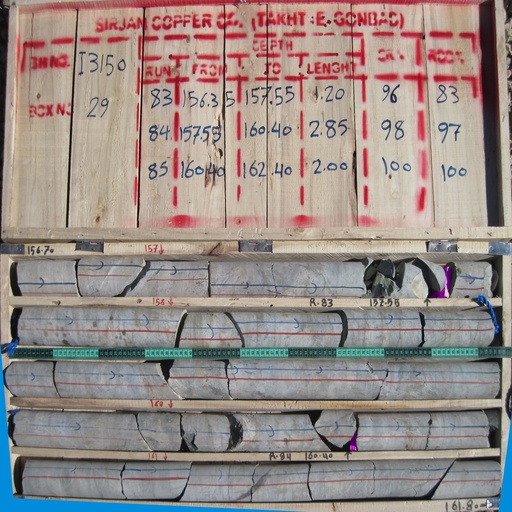 SIRJAN COPPER CO. (TAKHT-E-GONBAD)
DEPTH
BH NO. I3150 RUN FROM TO LENGHT CR% RQD%
BOX NO 29 83 156.35 157.55 1.20 96 83
84 157.55 160.40 2.85 98 97
85 160.40 162.40 2.00 100 100
156.70 157↓
158↓ R.83 157.55 ↑
160↓
161↓ R.84 160.40 ↑
161.80